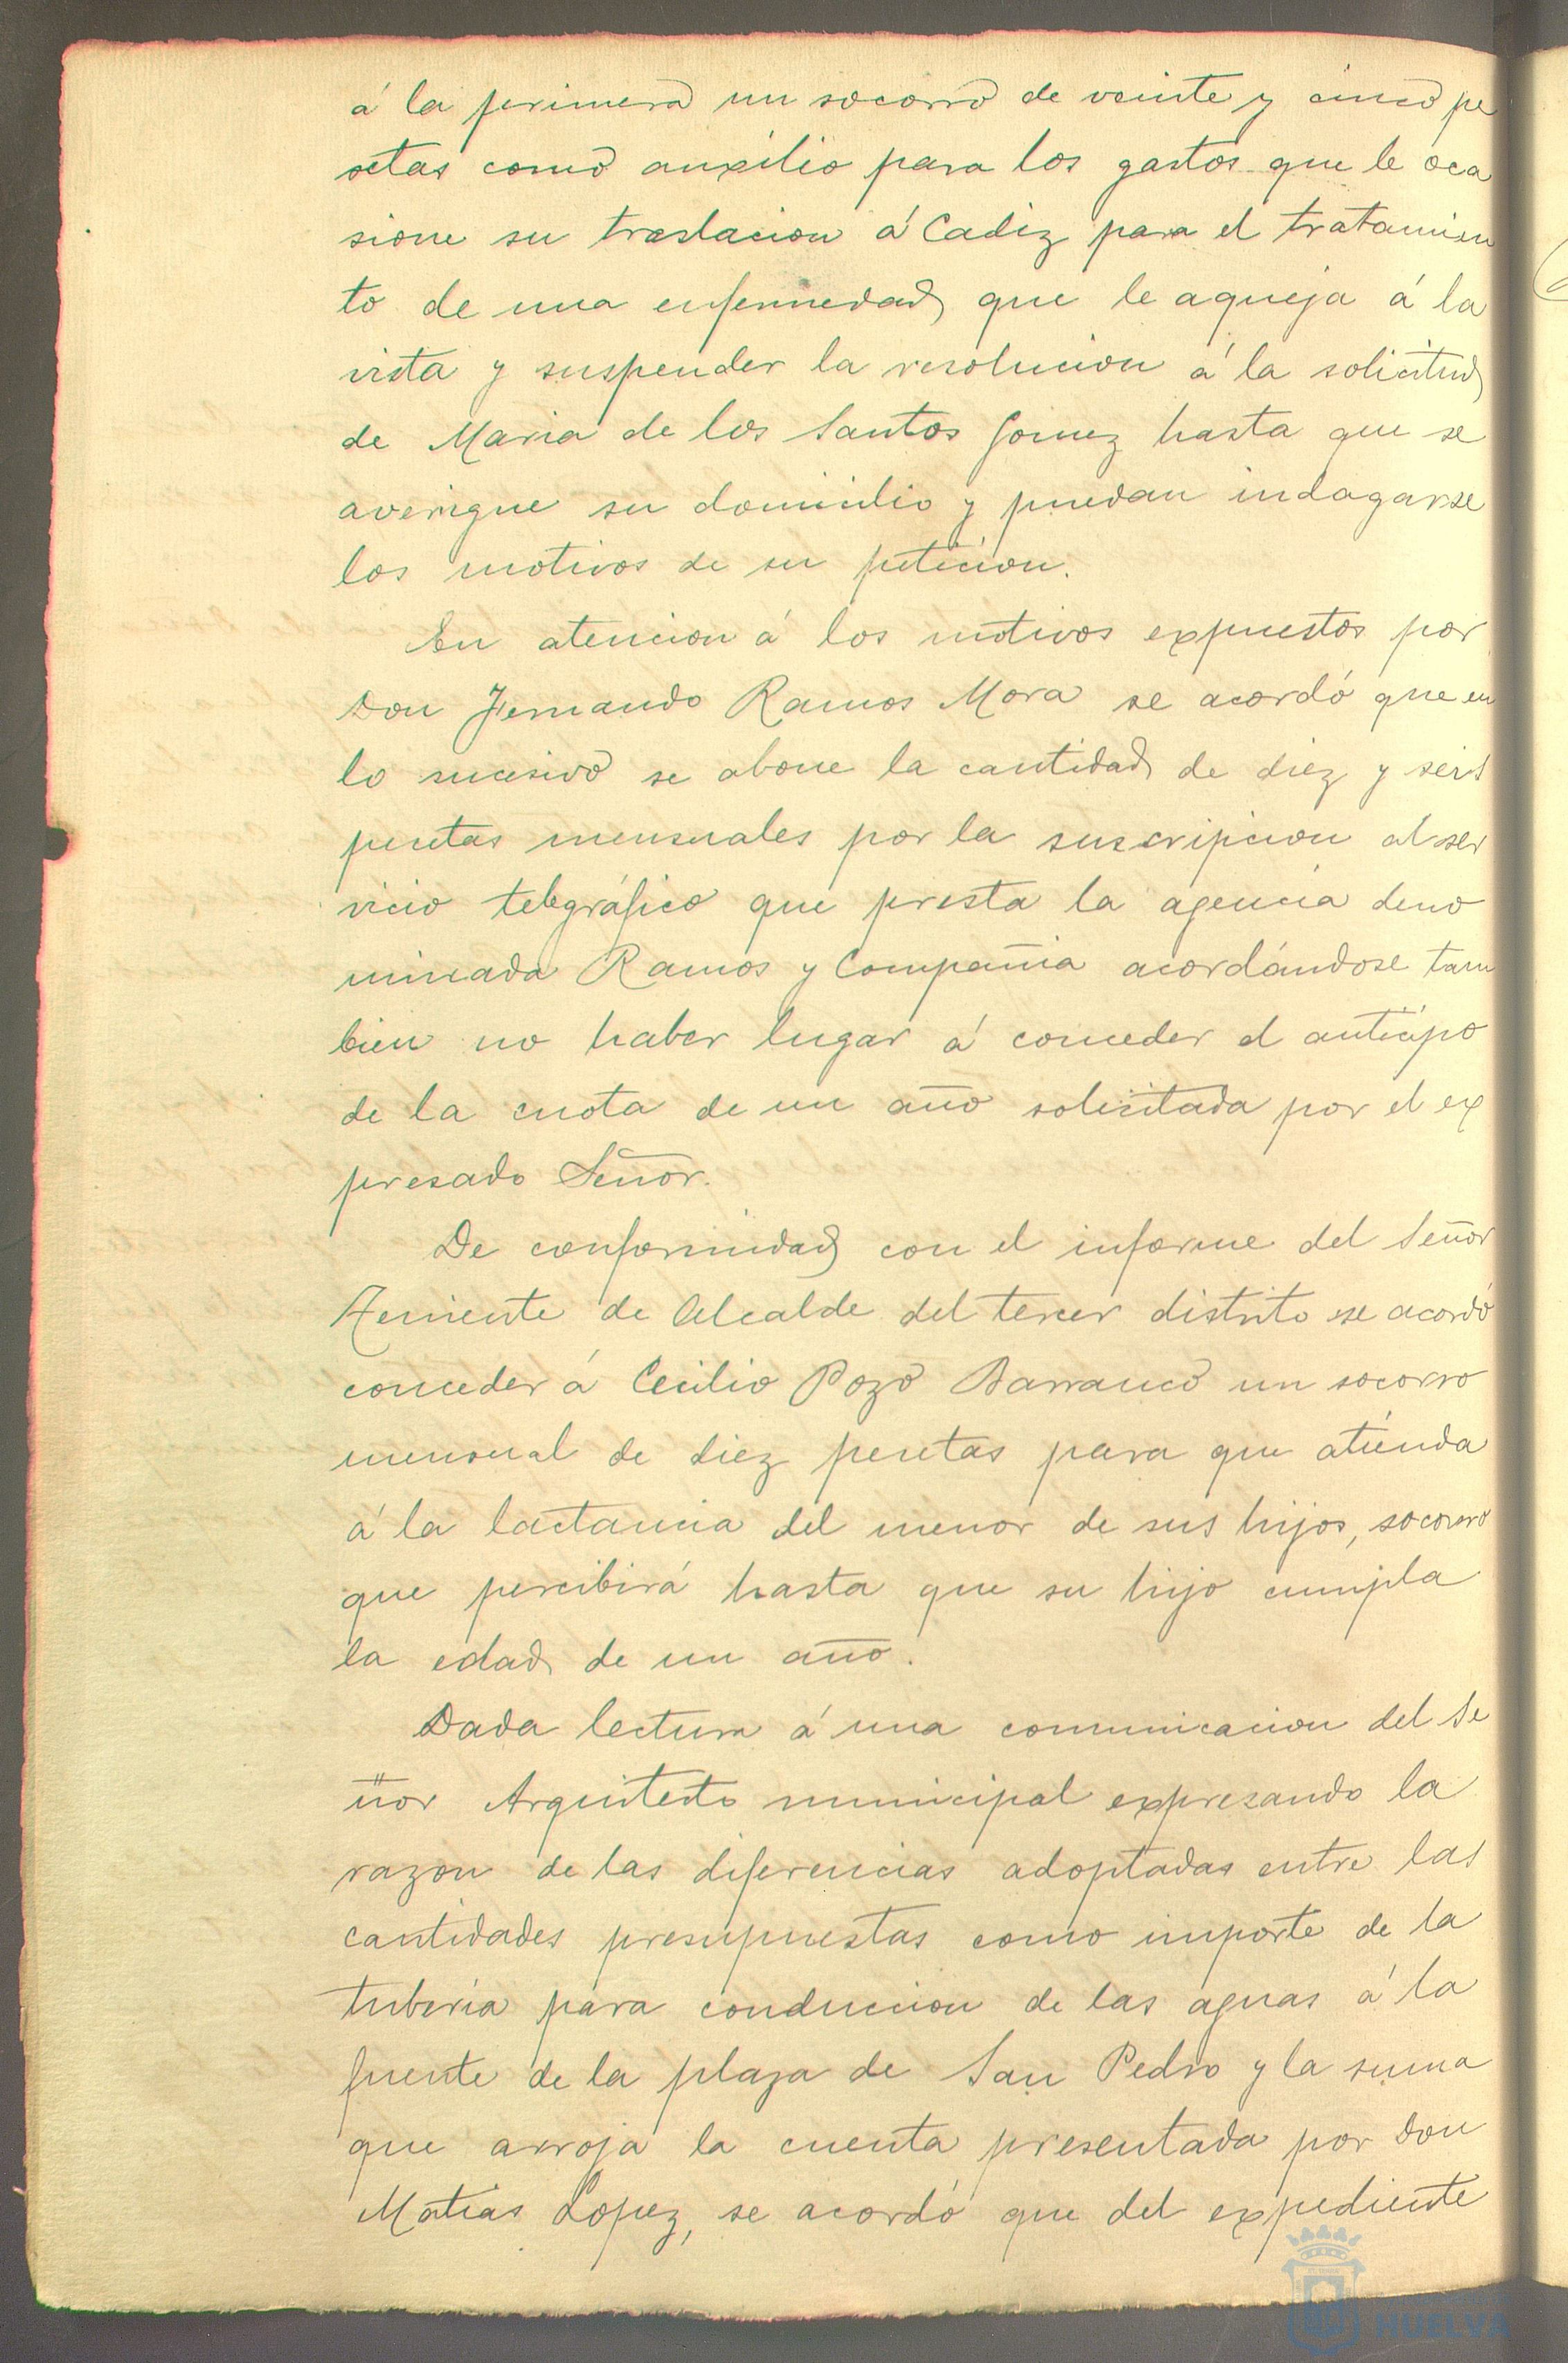 á la primera un socorro de veinte y cinco pe
setas como auxilio para los gastos que le oca
sione su traslacion á Cadiz para el tratamien
to de una enfermedad que le aqueja á la
vista y suspender la resolucion á la solicitud
de Maria de los Santos Gomez hasta que se
averigue su domicilio y puedan indagarse
los motivos de su peticion.
En atencion á los motivos expuestos por
Don Fernando Ramos Mora se acordó que en
lo sucesivo se abone la cantidad de diez y seis
pesetas mensuales por la suscripcion al ser
vicio telegráfico que presta la agencia deno
minada Ramos y Compañia acordándose tam
bien no haber lugar á conceder el anticipo
de la cuota de un año solicitada por el ex
presado Señor.
De conformidad con el informe del Señor
Teniente de Alcalde del tercer distrito se acordó
conceder á Cecilio Pozo Barranco un socorro
mensual de diez pesetas para que atienda
á la lactancia del menor de sus hijos, socorro
que percibirá hasta que su hijo cumpla
la edad de un año.
Dada lectura á una comunicacion del Se
ñor Arquitecto municipal expresando la
razon de las diferencias adoptadas entre las
cantidades presupuestas como importe de la
tuberia para conduccion de las aguas á la
fuente de la plaza de San Pedro y la suma
que arroja la cuenta presentada por Don
Matias Lopez, se acordó que del expediente
HUELVA